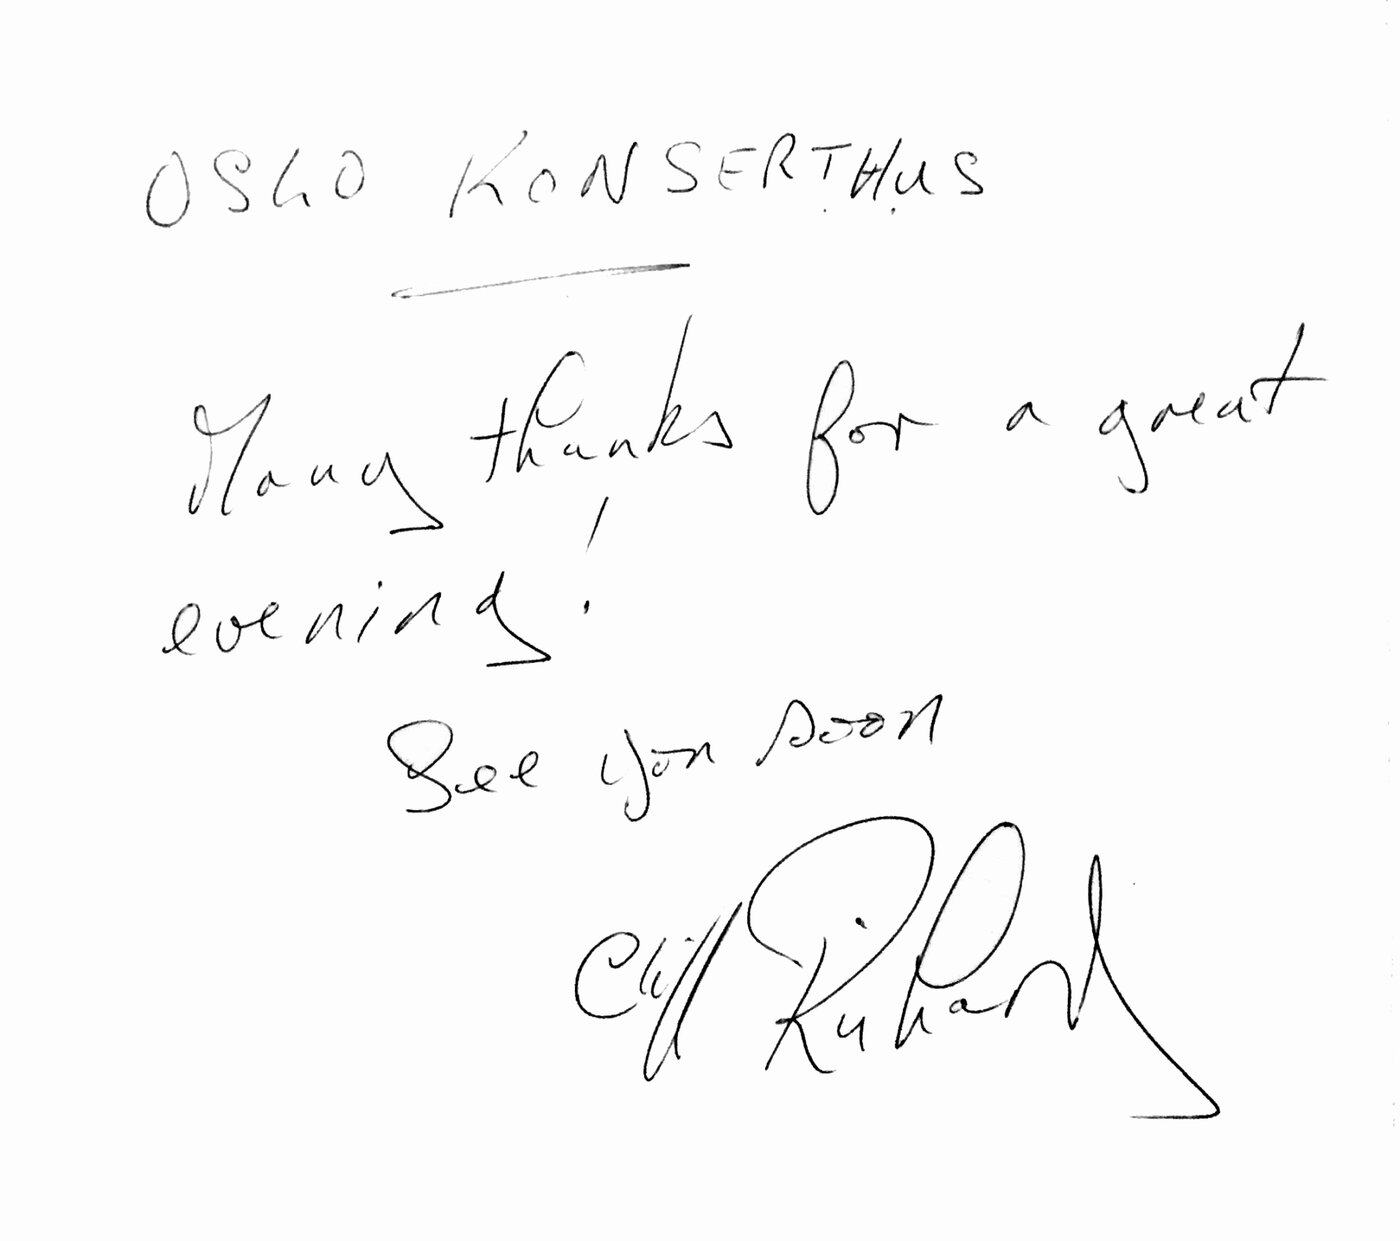 OSLO KONSERTHUS
Many thanks for a great
evening!
See you soon
Cliff Richard